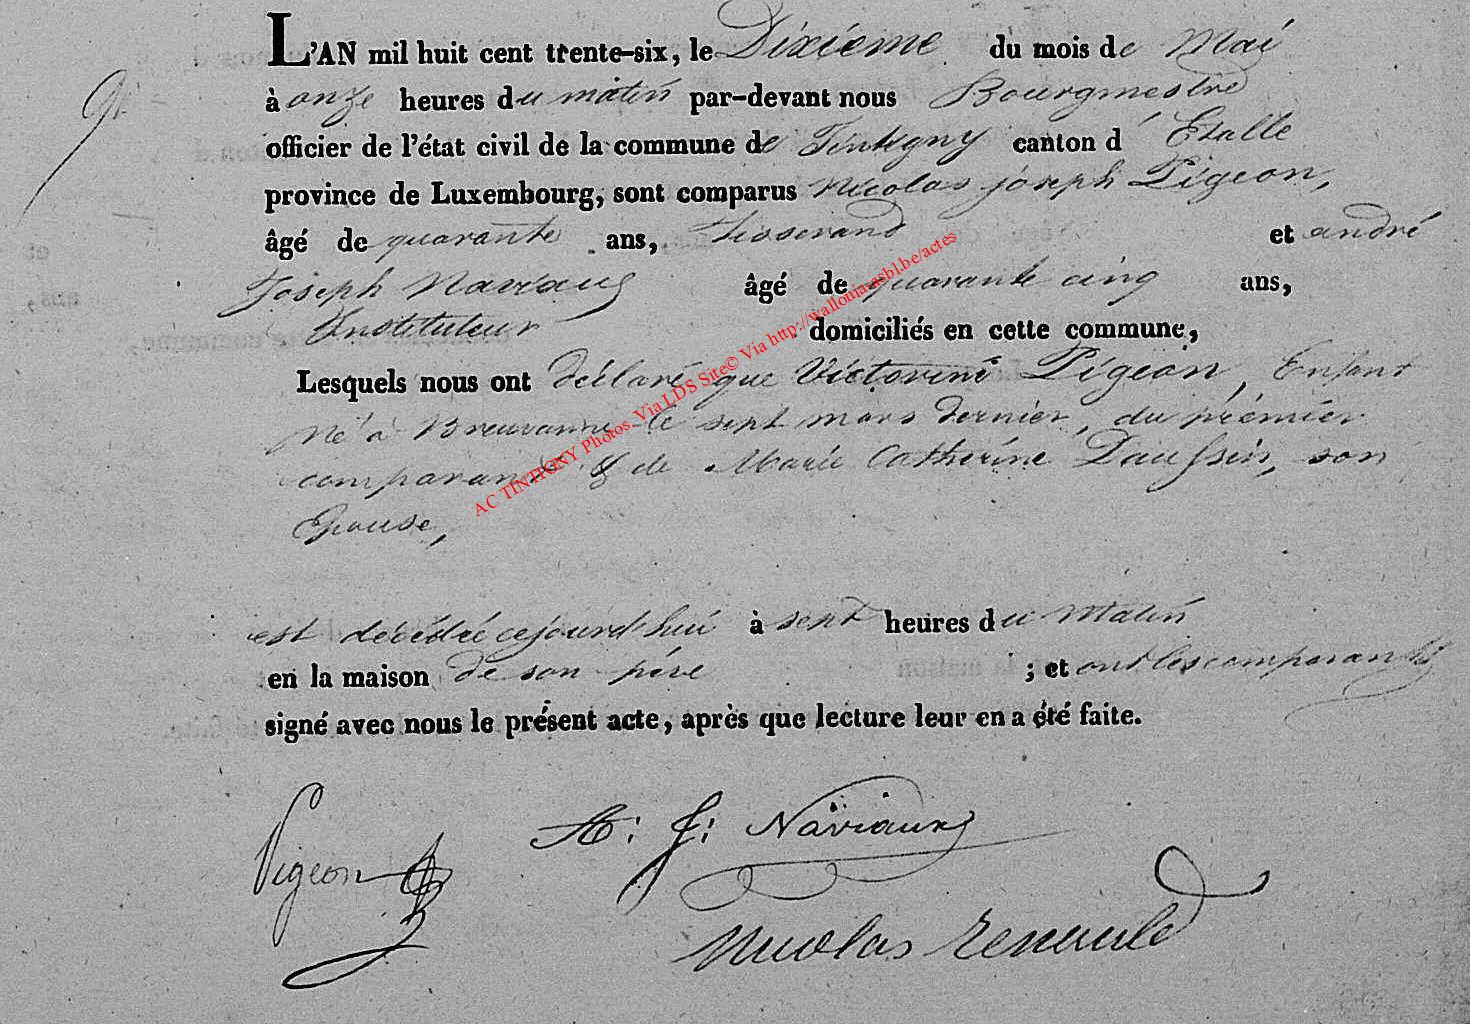 L'AN mil huit cent trente-six, le Dixième du mois de Mai
à onze heures du matin par-devant nous Bourgmestre
officier de l'état civil de la commune de Tintigny canton d'Etalle
province de Luxembourg, sont comparus Nicolas joseph Pigeon,
âgé de quarante ans, tisserand et andré
Joseph Naviaux âgé de quarante cinq ans,
Instituteur domiciliés en cette commune,
Lesquels nous ont déclaré que Victorine Pigeon, Enfant
Né à Breuvanne le sept mars dernier, du prémier
comparant & de Marie Catherine Daussin, son
Epouse,
est décédée cejourd'hui à sept heures du Matin
en la maison de son père ; et ont les comparants
signé avec nous le présent acte, après que lecture leur en a été faite.
Pigeon
A: J: Naviaux
Nicolas Renauld
AC TINTIGNY Photos Via LDS Site© Via http://wallonia-asbl.be/actes